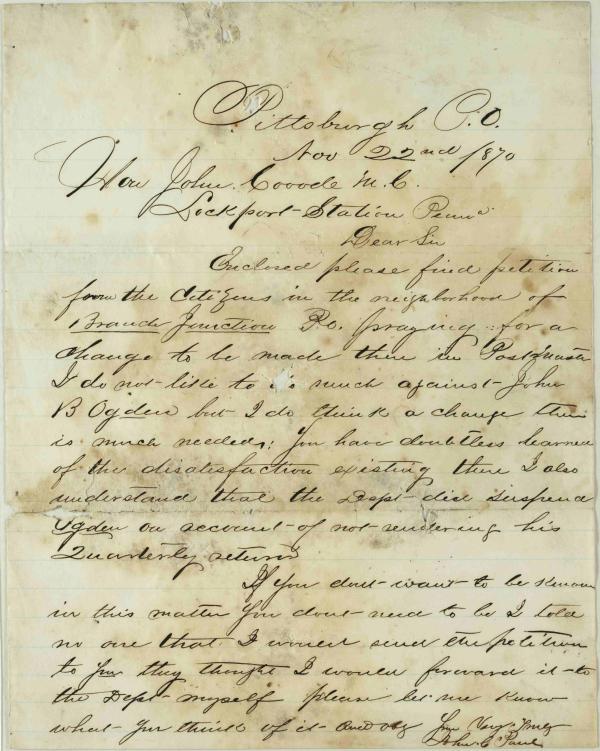 Pittsburgh P.O.
Nov 22nd 1870
Hon John Covode M.C.
Lockport Station Penna
Dear Sir
Enclosed please find petition
from the Citizens in the neighborhood of
Branch Junction P.o. praying for a
change to be made there in Postmaster
I do not like to do much against John
B Ogden but I do think a change there
is much needed; You have doubtless learned
of the disatisfaction existing there I also
understand that the Dept did suspend
Ogden on account of not rendering his
Quarterly returns
If you dont want to be known
in this matter You dont need to be I told
no one that I would send the petition
to You they thought I would forward it to
the Dept myself please let me know
what You think of it and
Your Very Truly
John C Paul